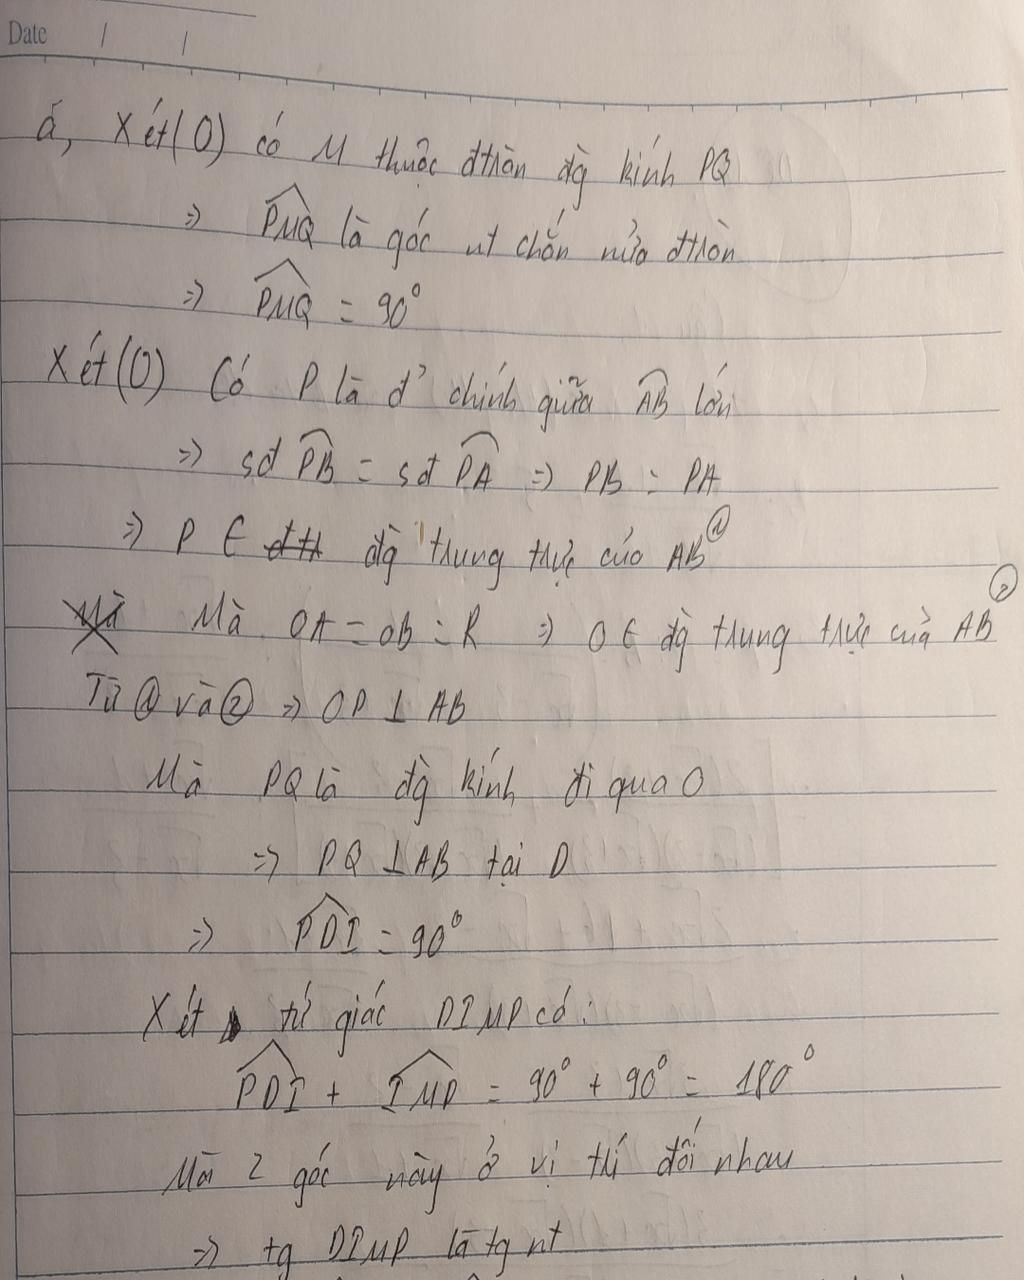 Date / /
a, Xét (O) có M thuộc đtròn đg kính PQ
=> PMQ là góc nt chắn nửa đtròn
=> PMQ = 90°
Xét (O) Có P là đ' chính giữa AB lớn
=> sđ PB = sđ PA => PB = PA
=> P ∈ đg trung trực của AB ①
Mà OA = OB = R => O ∈ đg trung trực của AB ②
Từ ① và ② => OP ⊥ AB
Mà PQ là đg kính đi qua O
=> PQ ⊥ AB tại D
=> PDI = 90°
Xét tứ giác DIMP có:
PDI + IMP = 90° + 90° = 180°
Mà 2 góc này ở vị trí đối nhau
=> tg DIMP là tg nt